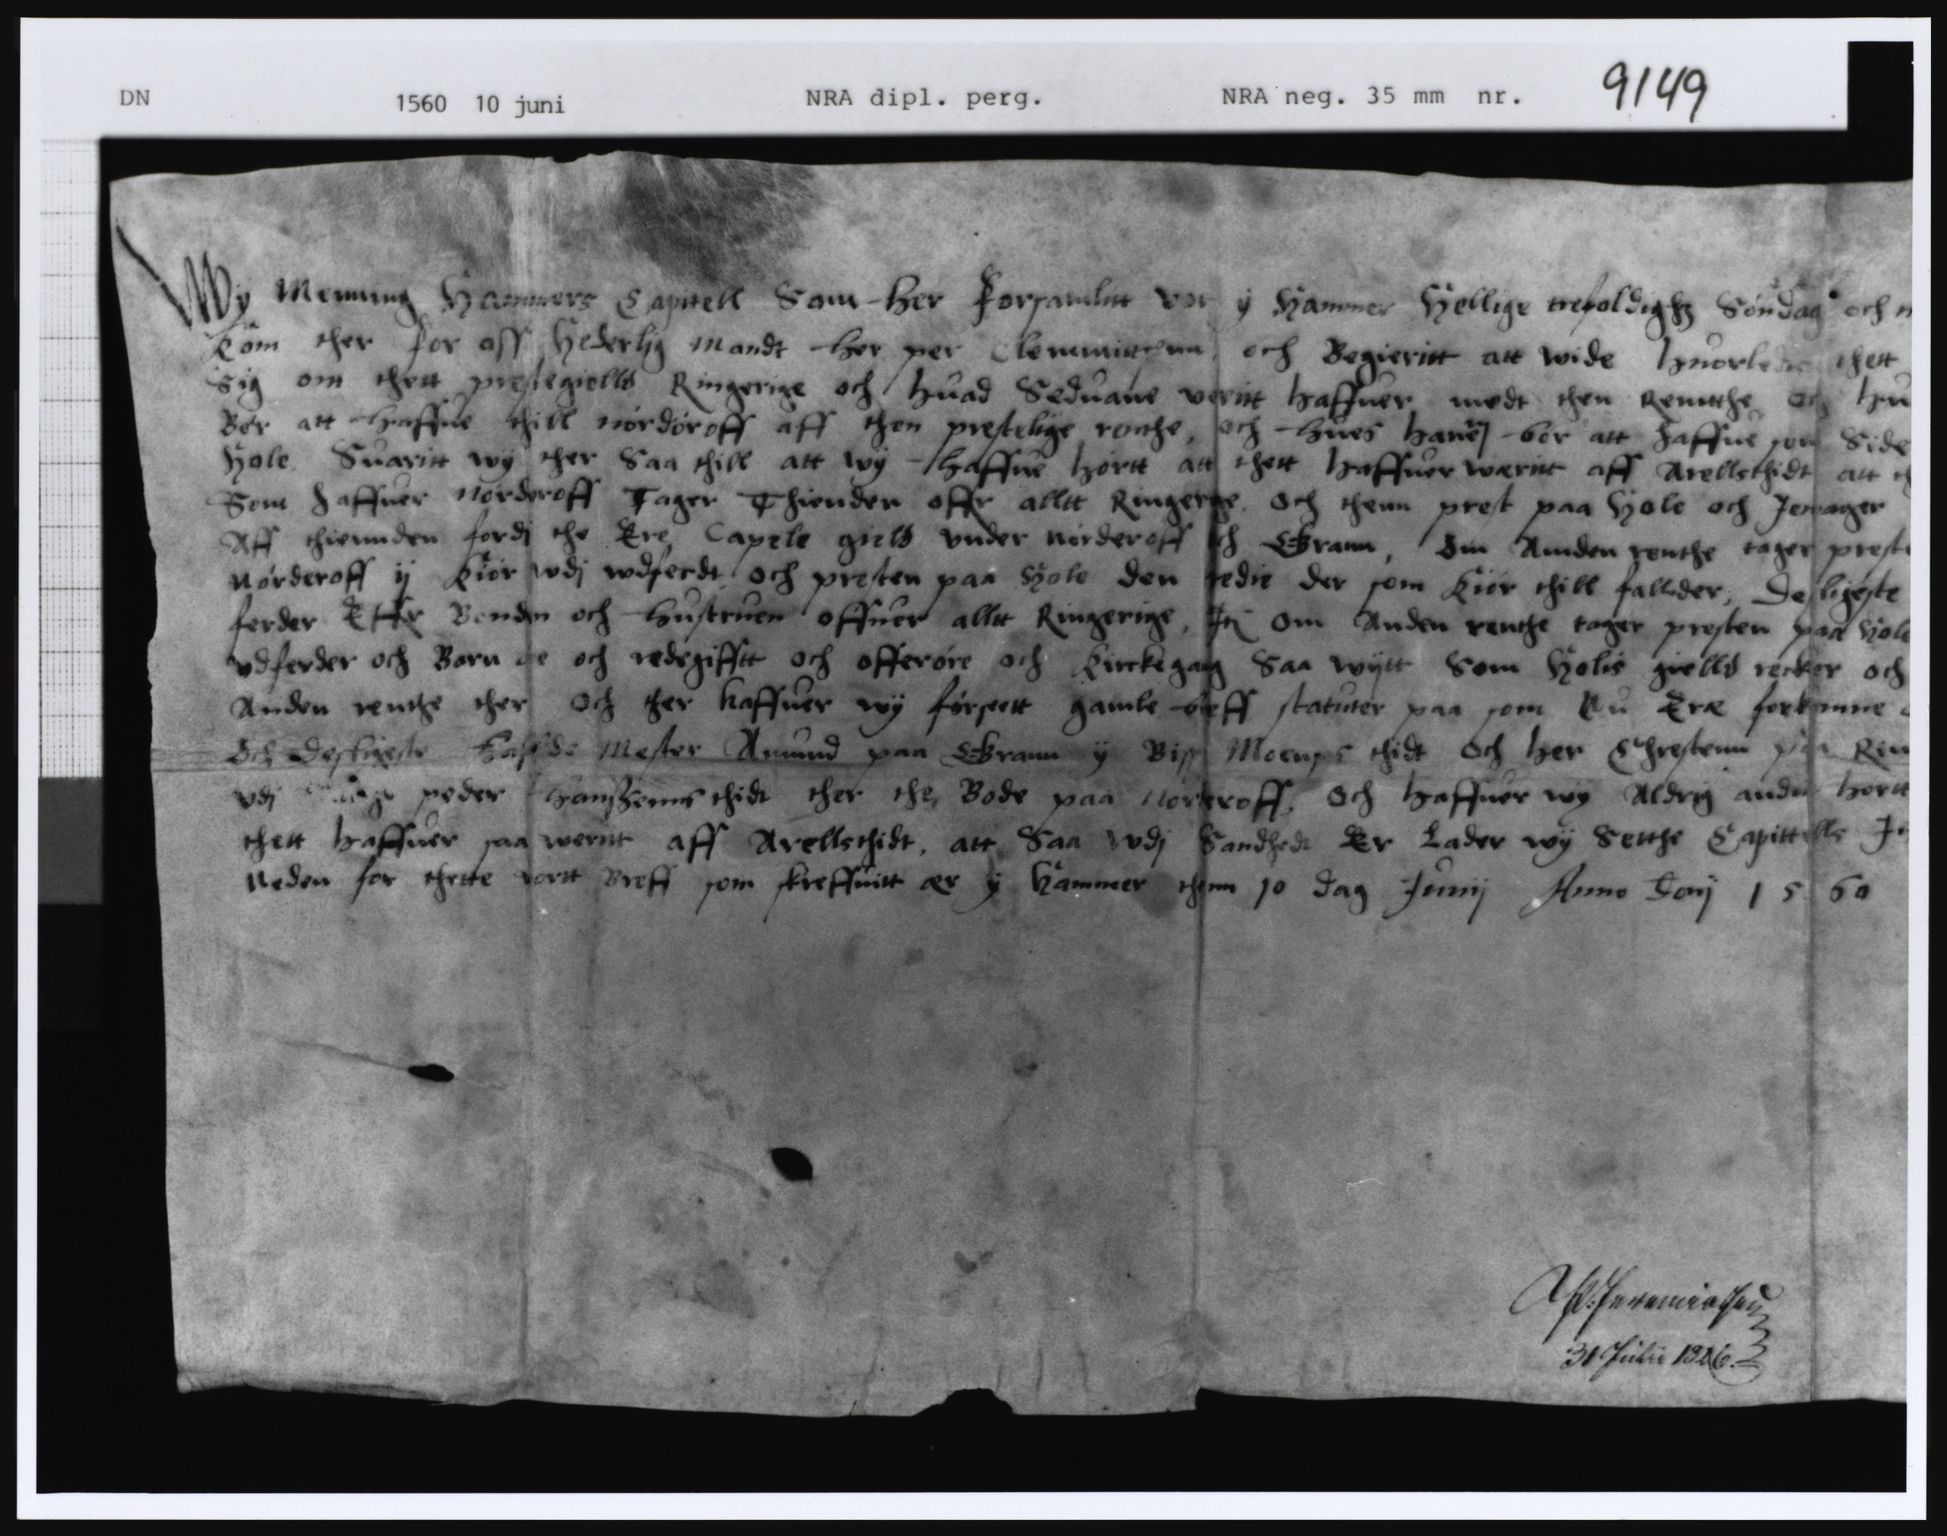 DN 1560 10 juni NRA dipl. perg. NRA neg. 35 mm nr. 9149
Wy Menning Hammers Capitell Som her forsamlitt vor y Hammer Hellige trefoldighz Søndag och
Kom ther for oss Hederlig Mandt her per Clemmittsenn och Begieritt att wide huorledis thett
Sig om thett prestegielld Ringerige och huad Seduane veritt haffuer medt then Renthe och hu
Bør att haffue thill nørdøroff aff then prestelige renthe, och hues hanem bør att haffue som Side
Hole Suaritt wy ther Saa thill att wy haffue hørtt att thett haffuer wæritt aff Arellsthidt att
Som haffuer Nørderoff Tager Thienden offr alltt Ringerige och thenn prest paa Hole och Jevnager
Aff thiennden fordj the Ere Capele gield vnder nørderoff och Grann, Om Anden renthe tager prest
Nørderoff ij Kiør wdj wdferdt och presten paa Hole den tredie der som Kiør thill fallder, Desligeste
ferder Effter Bonden och hustruen offuer alltt Ringerige, Itz om Anden renthe tager presten paa Hole
vdferder och Børn och redegifftt och offerøre och Kirckegang Saa wytt Som Holis gielld recker och
Anden renthe ther och ther haffuer wy førseett gamle breff statuter paa som Nu Ere forkomne
Och desligeste haffde Mester Amund paa Grann y Bisp Moenss thidt och her Chrestenn paa Rin
vdj peder Hanssenns thidt ther the Bode paa Nørderoff, Och haffuer wy Aldrig andit hørtt
thett haffuer saa weritt aff Arellsthidt, att Saa wdj Sandhedt Er Lader wy Setthe Capittells
Neden for thette vortt Breff som skreffuitt ær y Hammer thenn 10 dag Junij Anno Donj 1560
31 Julii 1826.